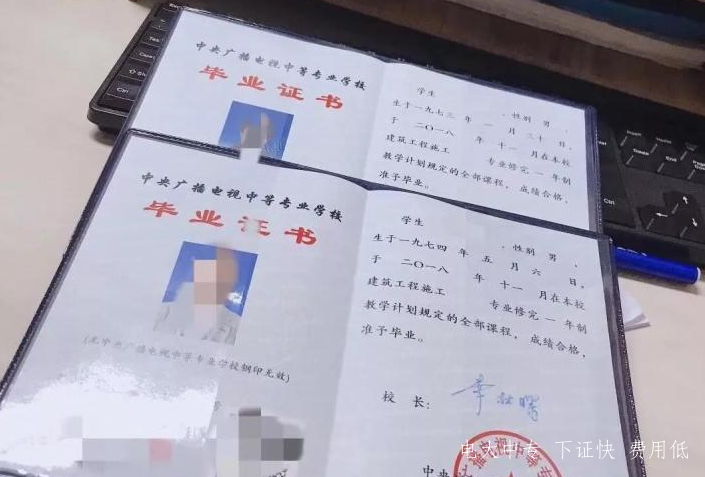 中央广播电视中等专业学校
毕业证书
学生
，性别 男 ，
生于一九七三 年 一 月 三十 日，
于 二〇一八 年 十一 月在本校
建筑工程施工 专业修完 一 年制
教学计划规定的全部课程，成绩合格，
准予毕业。
中央广播电视中等专业学校
毕业证书
(无中央广播电视中等专业学校钢印无效)
学生
，性别 男 ，
生于一九七四 年 五 月 六 日，
于 二〇一八 年 十一 月在本校
建筑工程施工 专业修完 一 年制
教学计划规定的全部课程，成绩合格，
准予毕业。
校 长：
中央
广播电视中等专
电大中专 下证快 费用低
Tab
Caps
Shift
Ctrl
Ctrl
End